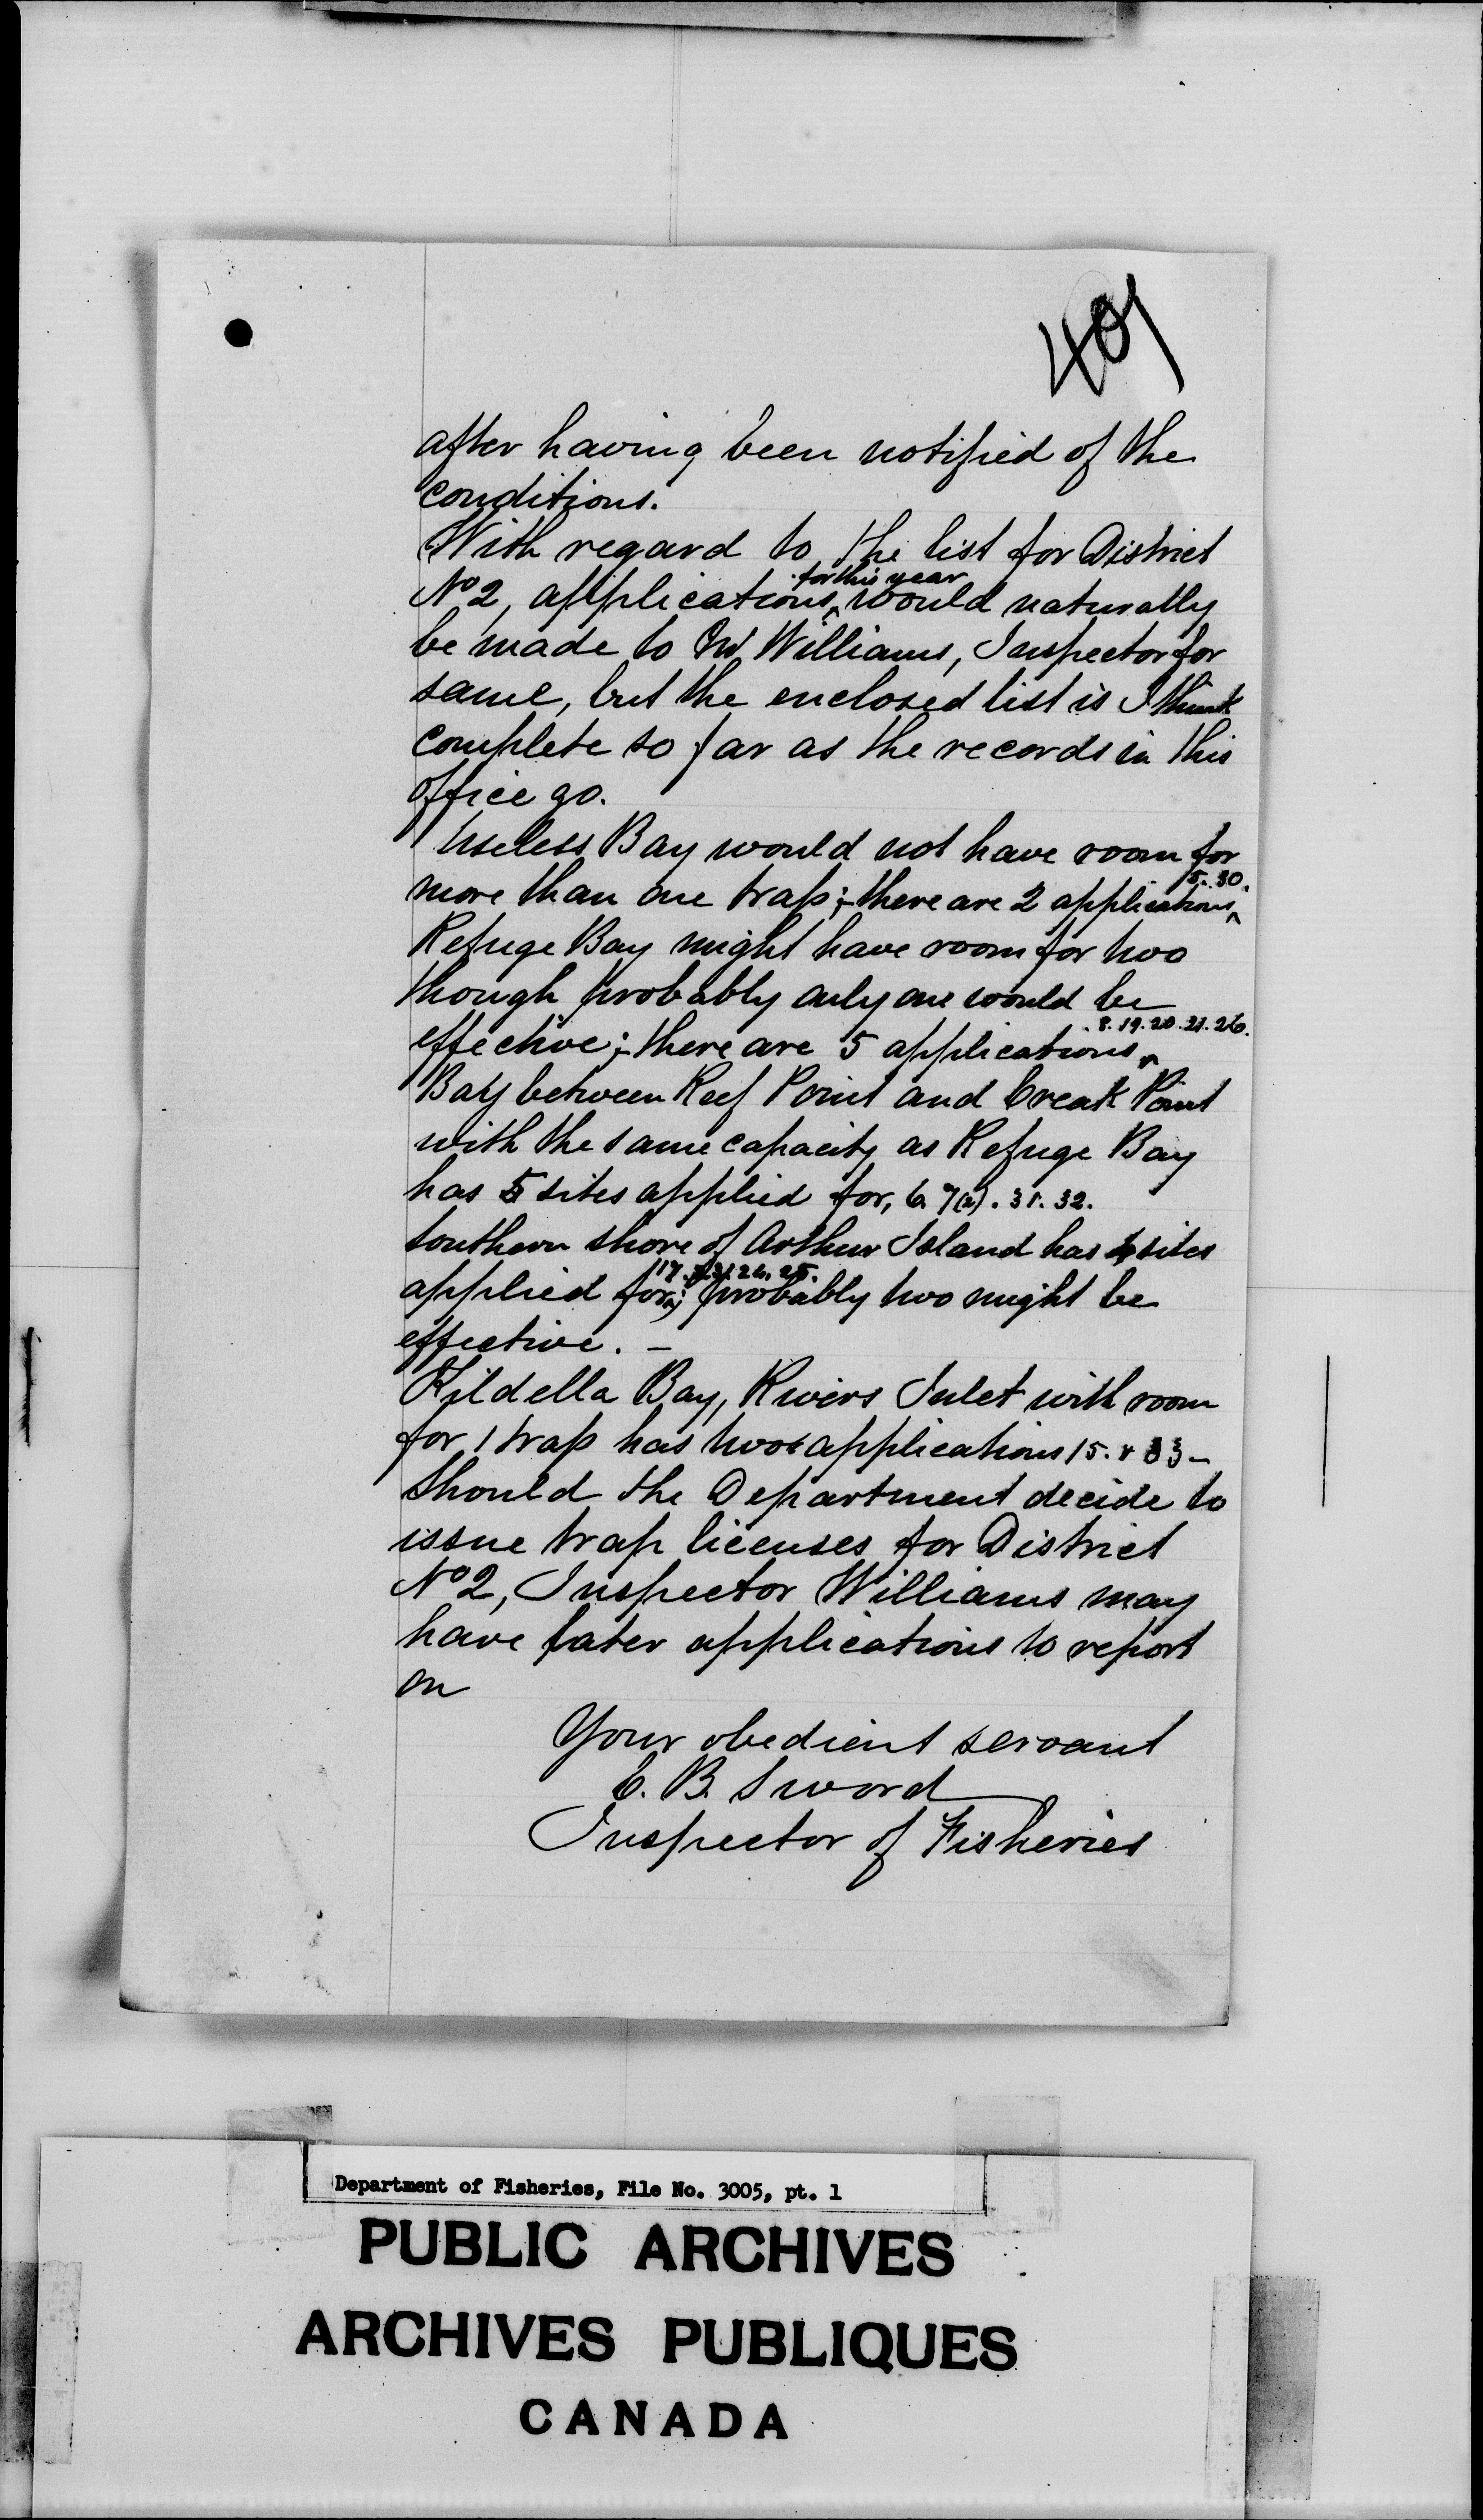 401
after having been notified of the
conditions.
With regard to the list for District
No 2, applications ^for this year would naturally
be made to Mr Williams, Inspector for
same, but the enclosed list is I think
complete so far as the records in this
office go.
Useless Bay would not have room for
more than one trap; - there are 2 applications ^5. 30.
Refuge Bay might have room for two
though probably only one would be
effective; - there are 5 applications ^8. 19. 20. 21. 26.
Bay between Reef Point and Creak Point
with the same capacity as Refuge Bay
has 5 sites applied for, 6. 7(2). 31. 32.
Southern shore of Arthur Island has sites
applied for; probably two might be
effective. -
Kildella Bay, Rivers Inlet with room
for 1 trap has two applications 15. & 33 -
Should the Department decide to
issue trap licenses for District
No 2, Inspector Williams may
have later applications to report
on
Your obedient servant
C. B. Sword
Inspector of Fisheries
Department of Fisheries, File No. 3005, pt. 1
PUBLIC ARCHIVES
ARCHIVES PUBLIQUES
CANADA